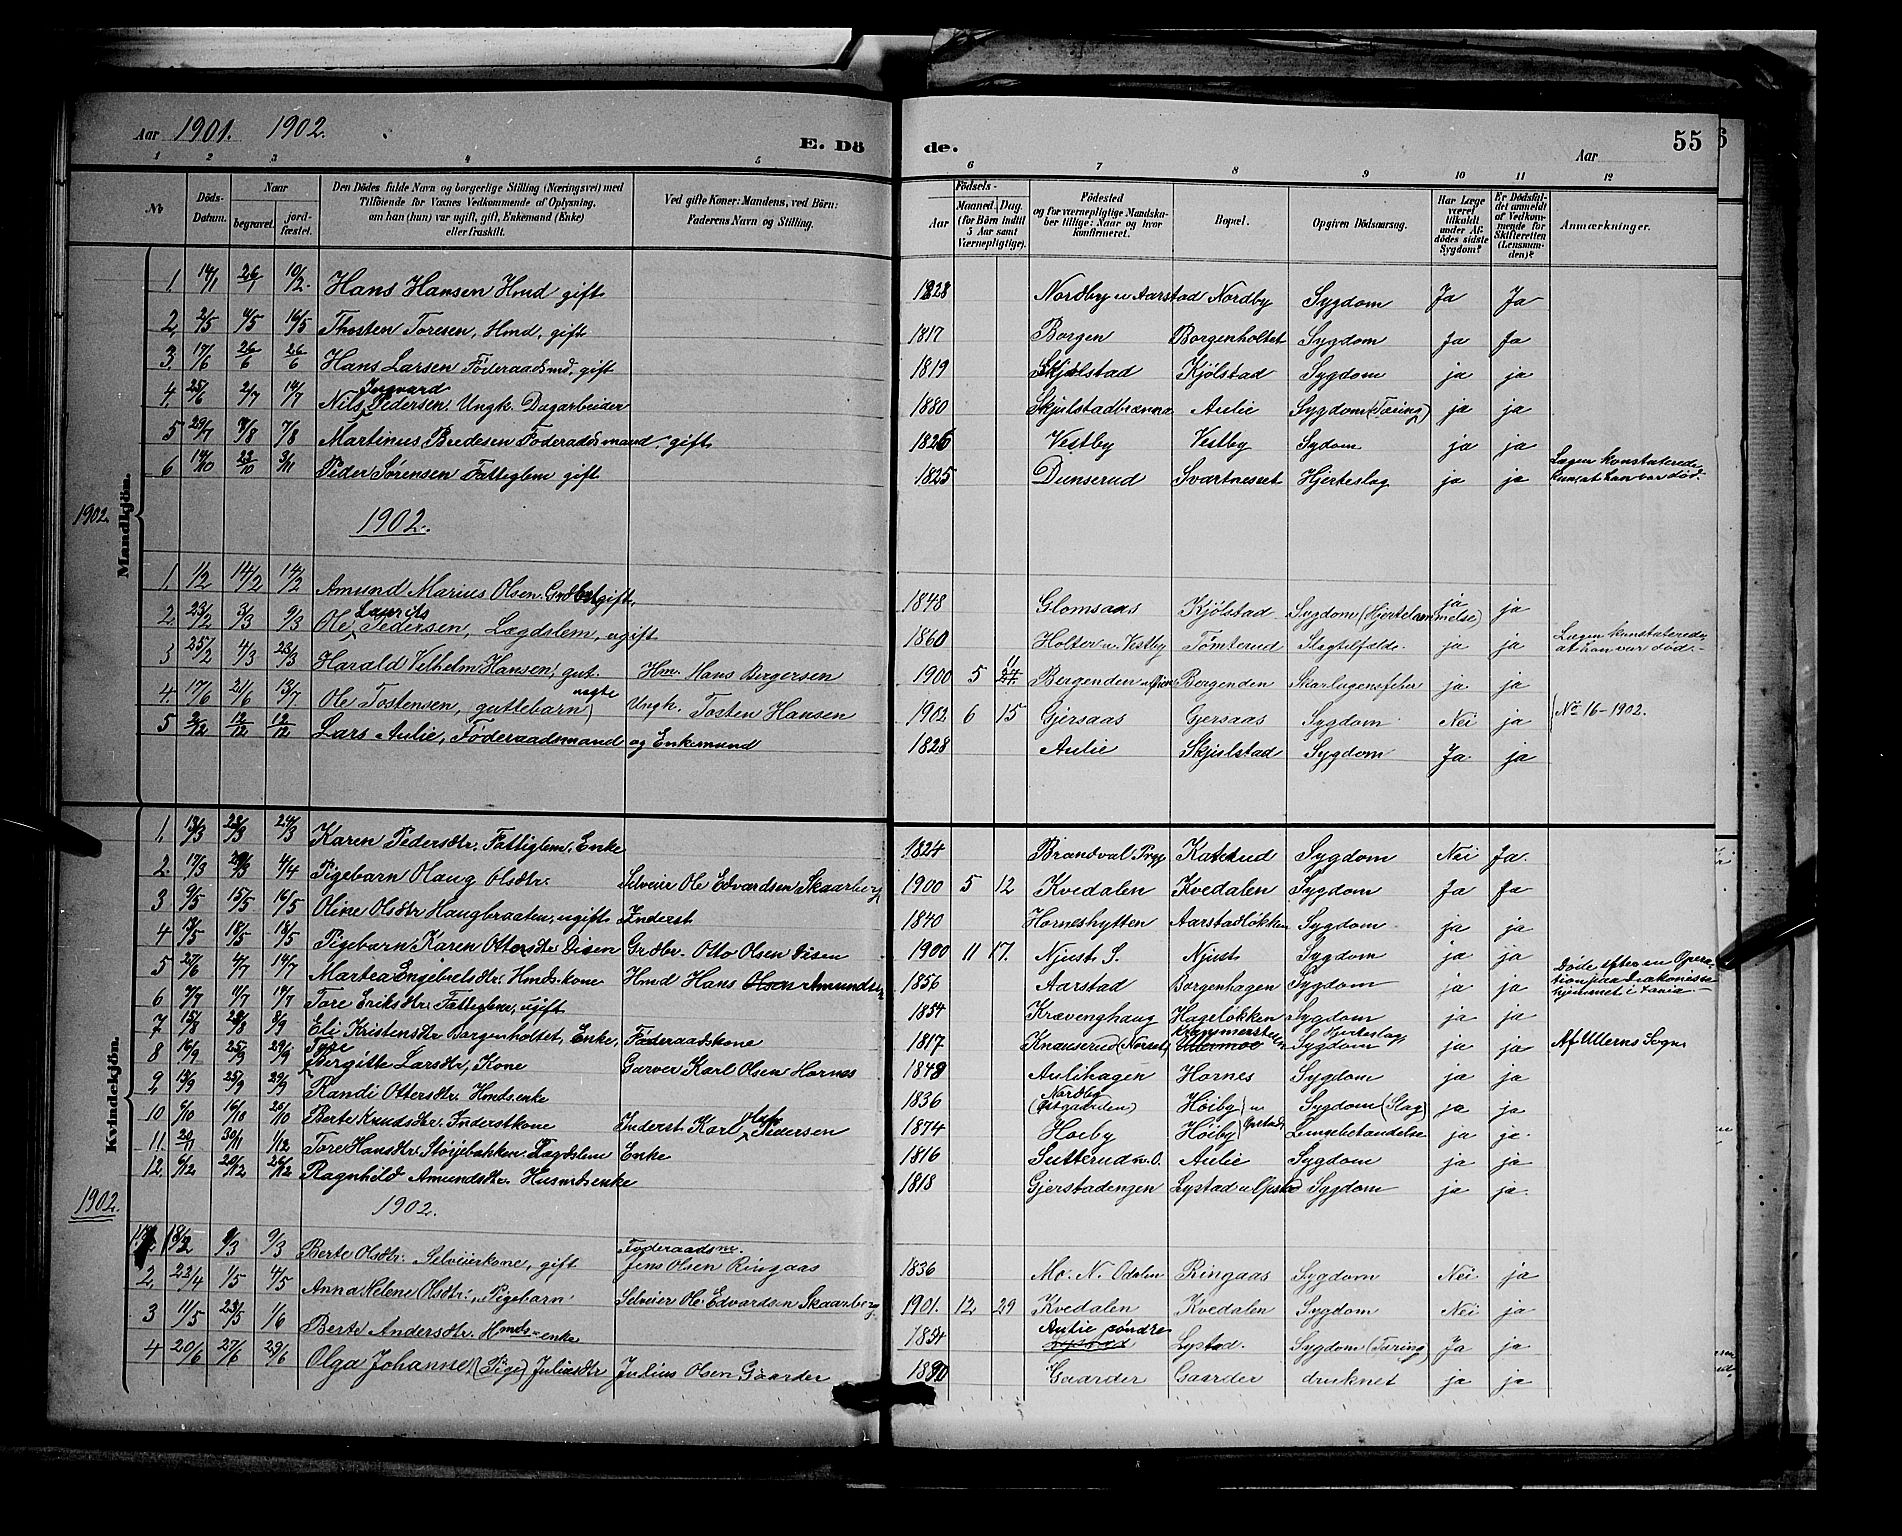 Aar 1901. 1902. E. Dö de. Aar 55
1 2 3 4 5 6 7 8 9 10 11 12
No Döds-Datum. Naar begravet. jord-fæstet. Den Dödes fulde Navn og borgerlige Stilling (Næringsvei) med Tilföiende for Voxnes Vedkommende af Oplysning, om han (hun) var ugift, gift, Enkemand (Enke) eller fraskilt. Ved gifte Koner: Mandens, ved Börn: Faderens Navn og Stilling. Födsels- Aar Maaned. Dag. (for Börn indtil 5 Aar samt Værnepligtige). Födested og for værnepligtige Mandska-ber tillige: Naar og hvor konfirmeret. Bopæl. Opgiven Dödsaarsag. Har Læge været tilkaldt under Af-dödes sidste Sygdom? Er Dödsfal-det anmeldt af Vedkom-mende for Skifteretten (Lensman-den)? Anmærkninger.
Mandkjön.
1. 14/1 26/1 10/2. Hans Hansen Hmd gift. 1828 Nordby u Aarstad Nordby Sygdom Ja Ja
2. 2/5 11/5 16/5 Thosten Toresen, Hmd, gift 1817 Borgen Borgenholtet Sygdom Ja Ja
3. 17/6 26/6 26/6 Hans Larsen Föderaadsmd, gift 1819 Skjölstad Kjölstad Sygdom ja ja
4. 25/6 2/7 19/7 Nils Ingvard Pedersen. Ungk. Dagarbeider 1880 Skjulstadbrænna Aulie Sygdom (Tæring) ja ja
5 29/7 7/8 7/8 Martinus Bredesen Föderaadsmand, gift 1826 Vestby Vestby Sydom ja ja
6 14/10 23/10 3/11 Peder Sörensen Fattiglem gift 1825 Dunserud Svartnesset Hjerteslag ja ja Lægen konstaterede kun at han var död.
1902. 1902.
1. 1/2 14/2 14/2 Amund Marius Olsen. Grdbr gift. 1848 Glomsaas Kjölstad Sygdom (Hjertelammelse) ja ja
2. 23/2 3/3 9/3 Ole Laurits Pedersen, Lægdslem, ugift 1860 Holter u. Vestby Tömterud Slagtilfælde. ja ja Lægen konstaterede at han var död.
3 25/2 4/3 23/3 Harald Vilhelm Hansen, gut. Hm. Hans Bergersen 1900 5 11 27. Bergenden Bergenden Skarlagensfeber ja ja
4. 17/6 21/6 13/7. Ole Tostensen, guttebarn uægte Ungk. Tosten Hansen 1902 6 15 Gjersaas Gjersaas Sygdom Nei ja No 16-1902.
5 2/12 12/12 12/12 Lars Aulie, Föderaadsmand og Enkemand 1828 Aulie Skjulstad Sygdom Ja. ja
Kvindekjön.
1. 13/3 23/3 24/3 Karen Pedersdtr. Fattiglem, Enke 1824 Brandval Katerud Sygdom Nei Ja.
2. 17/3 29/3 4/4 Pigebarn Olaug Olsdtr. Selveier Ole Edvardsen Skaarberg 1900 5 12 Kvedalen Kvedalen Sygdom Ja Ja
3 9/5 15/5 16/5 Oline Olsdtr Haugbraaten, ugift Inderst 1840 Horneshytten Aarstadlökken Sygdom ja ja
4 13/5 18/5 18/5 Pigebarn Karen Ottersdtr Disen Grdbr. Otto Olsen Disen 1900 11 17. Njust S. Njust Sygdom ja ja
5 27/6 4/7 14/7 Martea Engebretsdtr. Hmds kone Hmd Hans Olsen Amundsen 1856 Aarstad Borgenhagen Sygdom ja ja Döde efter en Opera-tion paa Diakonisse hjemmet i Xania.
6 7/7 11/7 14/7 Tore Eriksdtr. Fattiglem, ugift 1854 Krævenghaug Hagelökken Sygdom ja ja
7 15/8 28/8 8/9 Eli Kristensdtr Borgenholtet, Enke, Föderaadskone 1817 Knæuserud (Norset) Ullernmoe Sygdom Hjerteslag ja ja Af Ullerns Sogn
8 16/9 25/9 29/9 Tore Birgitte Larsdtr, Kone Garver Karl Olsen Hornes 1849 Aulihagen Hornes Sygdom ja ja
9 13/9 25/9 29/9 Randi Ottersdtr. Hmds.enke 1836 Nordby (Östgaarden) Höiby u Opstad Sygdom (Slag) ja ja
10 6/10 16/10 25/10 Berte Knudsdtr. Inderstkone Inderst Karl Olaf Pedersen 1874 Hoiby Höiby Lungebetændelse ja ja.
11. 20/11 30/11 1/12 Tore Hansdtr. Stöijebakken Lægdslem Enke 1816 Sutterud n. O. Aulie Sygdom ja ja
12. 6/12 20/12 26/12 Ragnhild Amundsdtr. Husmdsenke 1818 Gjerstadengen Lystad u Opstad Sygdom ja ja.
1902. 1902.
1. 18/2 9/3 9/3 Berte Olsdtr. Selveierkone, gift Föderaadsm. Jens Olsen Ringaas 1836 Mo. N. Odalen Ringaas Sygdom Nei ja
2. 23/4 1/5 4/5 Anna Helene Olsdtr., Pigebarn Selveier Ole Edvardsen Skaarberg 1901. 12. 29 Kvedalen Kvedalen Sygdom Nei ja
3 11/5 23/5 1/6 Berte Andersdtr. Hmds-enke 1854 Aulie söndre Lystad Lystad. Sygdom (Tæring) Ja ja
4 20/6 27/6 29/6 Olga Johanne, (Pige) Juliusdtr Julius Olsen Gaarder 1890 Gaarder Gaarder druknet ja ja